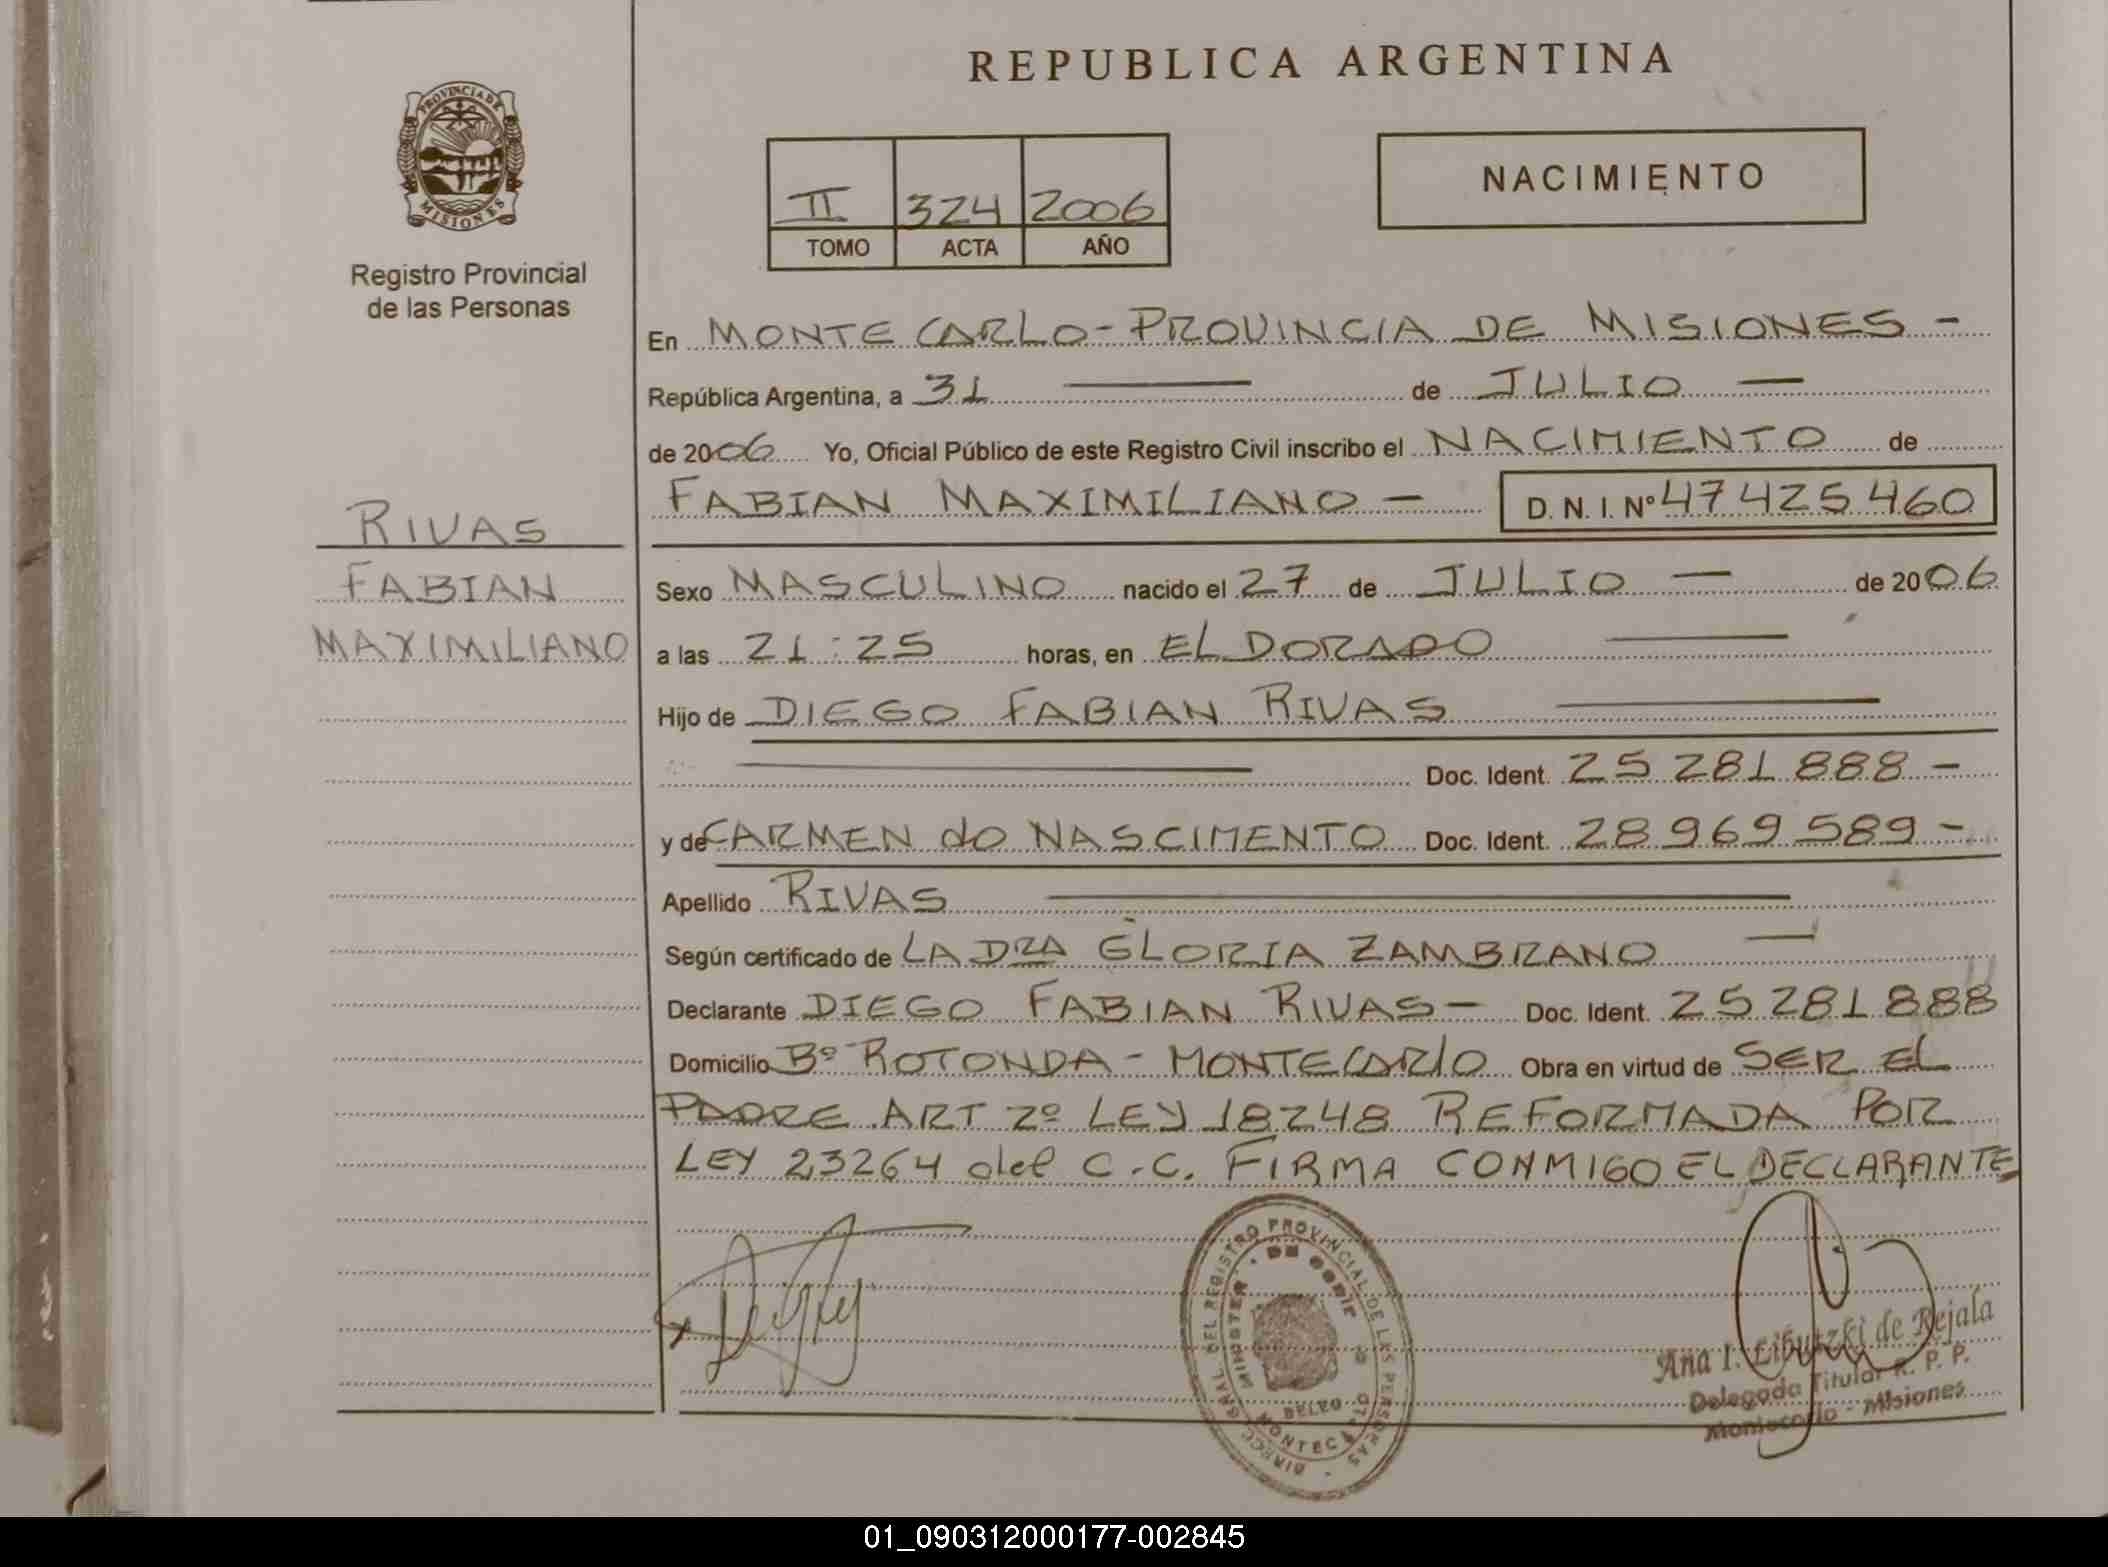 REPUBLICA ARGENTINA
PROVINCIA DE
MISIONES
Registro Provincial
de las Personas
II 324 2006
TOMO ACTA AÑO
NACIMIENTO
En MONTE CARLO - PROVINCIA DE MISIONES -
República Argentina, a 31 — de JULIO —
de 2006 Yo, Oficial Público de este Registro Civil inscribo el NACIMIENTO de
FABIAN MAXIMILIANO - D. N. I. Nº 47425460
RIVAS
FABIAN
MAXIMILIANO
Sexo MASCULINO nacido el 27 de JULIO — de 2006
a las 21:25 horas, en ELDORADO —
Hijo de DIEGO FABIAN RIVAS —
— Doc. Ident. 25 281 888 -
y de CARMEN do NASCIMENTO Doc. Ident. 28 969 589 -
Apellido RIVAS —
Según certificado de LA DRA GLORIA ZAMBRANO —
Declarante DIEGO FABIAN RIVAS - Doc. Ident. 25 281 888
Domicilio Bº ROTONDA - MONTECARLO Obra en virtud de SER EL
PADRE. ART 2º LEY 18248 REFORMADA POR
LEY 23264 del C.C. FIRMA CONMIGO EL DECLARANTE
REGISTRO PROVINCIAL DE LAS PERSONAS
Ana I. Libutzki de Rejala
Delegada Titular R. P. P.
Montecarlo - Misiones
01_090312000177-002845